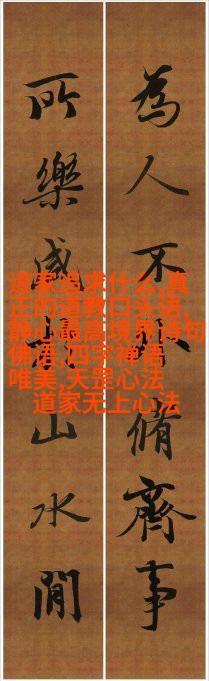 為人不脩齊事
所樂咸山水間
道家追求什么,真
正的道教口头语,
静心最高境界诗句
佛语,四字禅语
唯美,天罡心法
道家无上心法